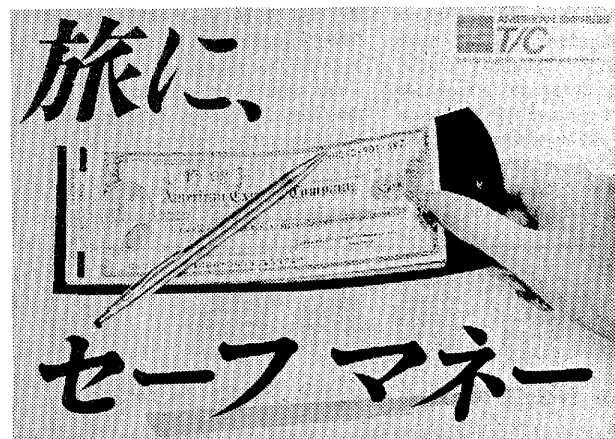 旅に、
AMERICAN EXPRESS
T/C
American Express Company
セーフ マネー